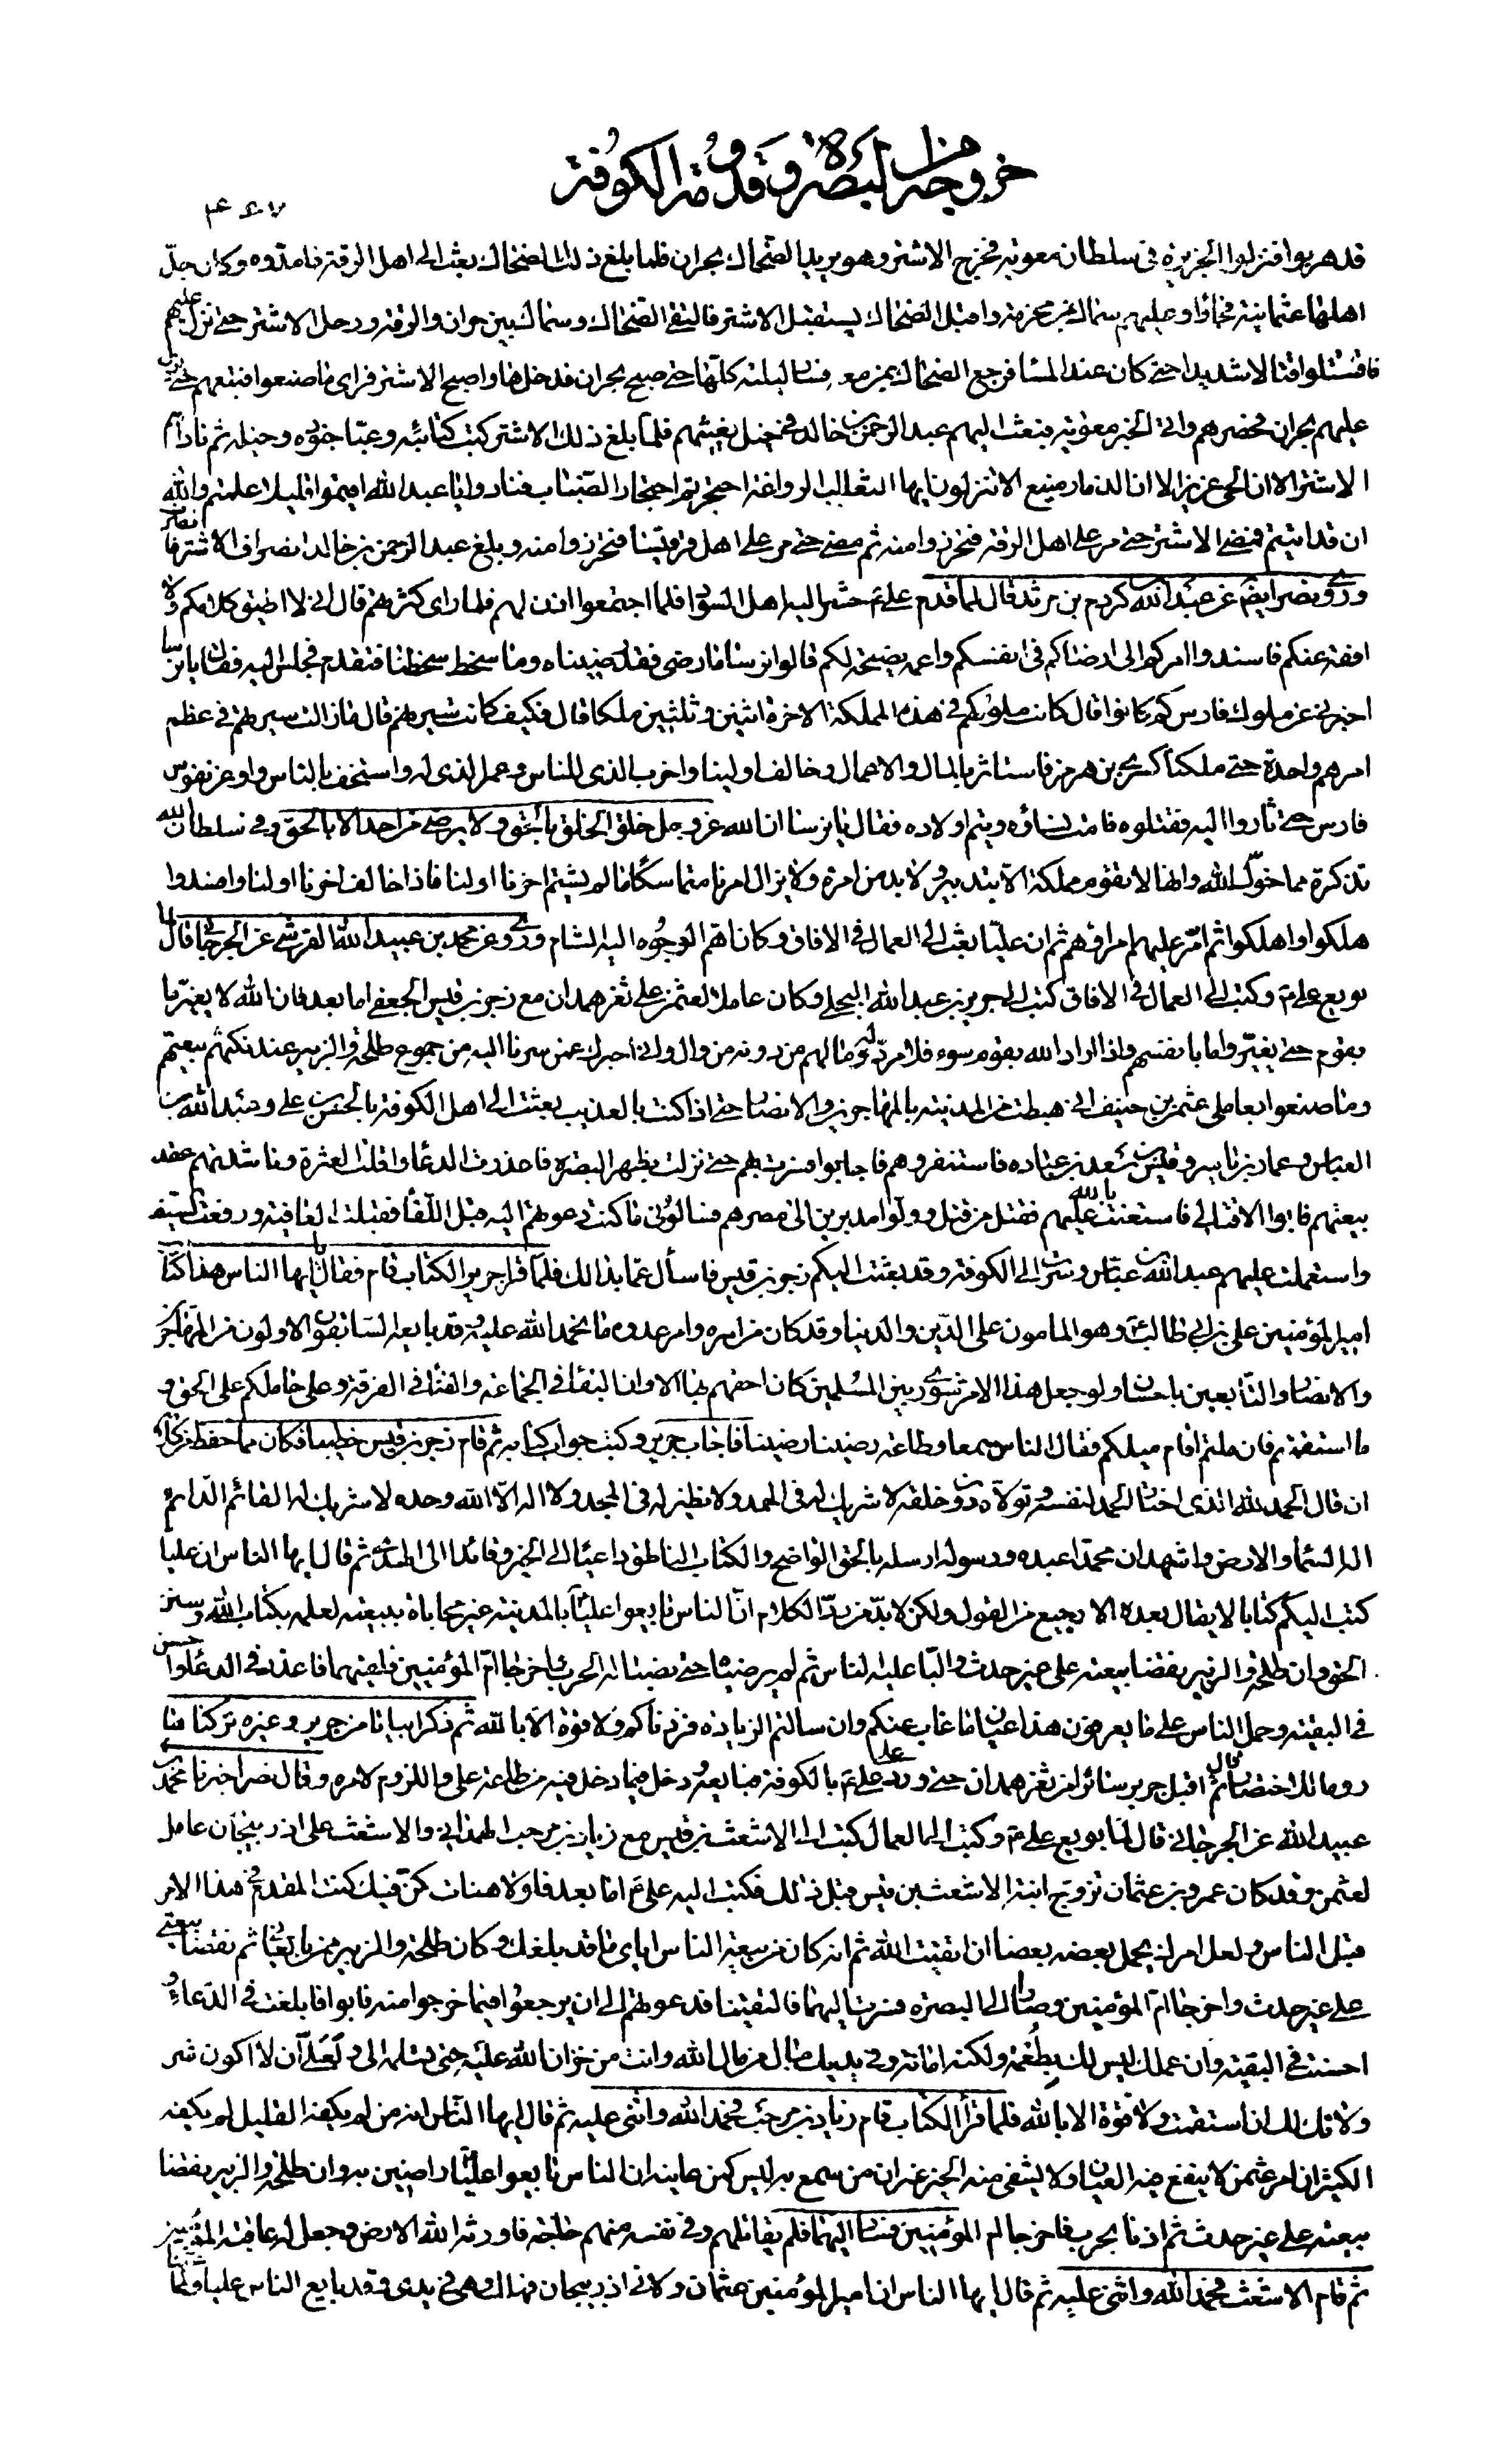 خروجه من البصرة و قدومه الكوفة
٤٦٧
قد هربوا فنزلوا الجزيرة في سلطان معوية فخرج الاشتر و هو يريد الضحاك بحران فلما بلغ ذلك الضحاك بعث الى اهل الرقة فامدوه و كان جل
اهلها عثمانية فجاؤا و عليهم سماك بن مخرمة و اقبل الضحاك يستقبل الاشتر فالتقى الضحاك و سماك بين حران و الرقة و رحل الاشتر حتى نزل عليهم
فاقتتلوا قتالا شديدا حتى كان عند المسا فرجع الضحاك بمن معه فسار ليلته كلها حتى صبح بحران فدخلها و اصبح الاشتر فراى ما صنعوا فتبعهم حتى نزل
عليهم بحران فحصرهم و اتى الخبر معوية فبعث اليهم عبد الرحمن بن خالد في خيل يغيثهم فلما بلغ ذلك الاشتر كتب كتائبه و عبا جنوده و خيله ثم ناداهم
الاشتر الا ان الحي عزيز الا ان الذمار منيع الا تنزلون ايها الثعالب الرواغة احتجرتم احتجار الضباب فنادوا يا عبد الله اقيموا قليلا علمتم و الله
ان قد اتيتم فمضى الاشتر حتى مر على اهل الرقة فتحرزوا منه ثم مضى حتى مر على اهل قرقيسا فتحرزوا منه و بلغ عبد الرحمن بن خالد انصراف الاشتر فانصرف
و روى نصر ايضا عن عبد الله كردم بن مرثد قال لما قدم على ع حشر اليه اهل السواد فلما اجتمعوا اذن لهم فلما راى كثرتهم قال انى لا اطيق كلامكم و لا
افقه عنكم فاسندوا امركم الى ارضاكم في انفسكم و اعمه نصيحة لكم قالوا نرسا ما رضى فقد رضيناه و ما سخط سخطنا فتقدم فجلس اليه فقال يا نرسا
اخبرني عن ملوك فارس كم كانوا قال كانت ملوكهم في هذه المملكة الاخرة اثنين و ثلثين ملكا قال فكيف كانت سيرتهم قال ما زالت سيرتهم في عظم
امرهم واحدة حتى ملكنا كسرى بن هرمز فاستاثر بالمال و الاعمال و خالف اولينا و اخرب الذى للناس و عمر الذى له و استخف بالناس و اوغر نفوس
فارس حتى ثاروا اليه فقتلوه فامت نساؤه و يتم اولاده فقال يا نرسا ان الله عز و جل خلق الخلق بالحق و لا يرضى من احد الا بالحق و في سلطان الله
تذكرة مما خول الله و انها لا تقوم مملكة الا بتدبير و لا بد من امرة و لا يزال امرنا متماسكا ما لم يشتم اخرنا اولنا فاذا خالف اخرنا اولنا و افسدوا
هلكوا و اهلكوا ثم امر عليهم امراءهم ثم ان عليا بعث الى العمال في الافاق و كان اهم الوجوه اليه الشام و روى عن محمد بن عبيد الله القرشي عن الجرجاني قال لما
بويع على ع و كتب الى العمال في الافاق كتب الى جرير بن عبد الله البجلى و كان عاملا لعثمن على ثغر همدان مع زحر بن قيس الجعفى اما بعد فان الله لا يغير ما
بقوم حتى يغيروا ما بانفسهم و اذا اراد الله بقوم سوء فلا مرد له و ما لهم من دونه من وال و انى اخبرك عمن سرنا اليه من جموع طلحة و الزبير عند نكثهم بيعتهم
و ما صنعوا بعاملى عثمن بن حنيف انى هبطت من المدينة بالمهاجرين و الانصار حتى اذا كنت بالعذيب بعثت الى اهل الكوفة بالحسن بن على و عبد الله بن
العباس و عمار بن ياسر و قيس بن سعد بن عباده فاستنفروهم فاجابوا فسرت بهم حتى نزلت بظهر البصرة فاعذرت في الدعاء و اقلت العثرة و ناشدتهم عقد
بيعتهم فابوا الا قتالى فاستعنت بالله عليهم فقتل من قتل و ولوا مدبرين الى مصرهم فسالونى ما كنت دعوتهم اليه قبل اللقا فقبلت العافية و رفعت السيف
و استعملت عليهم عبد الله بن عباس و سرت الى الكوفة و قد بعثت اليكم زحر بن قيس فاسأل عما بدا لك فلما قرا جرير الكتاب قام فقال يا ايها الناس هذا كتاب
امير المؤمنين على بن ابى طالب ع و هو المامون على الدين و الدنيا و قد كان من امره و امر عدوه ما نحمد الله عليه و قد بايعه السابقون الاولون من المهاجرين
و الانصار و التابعين باحسان و لو جعل هذا الامر شورى بين المسلمين كان احقهم بها الا و ان البقاء في الجماعة و الفناء في الفرقة و على حاملكم على الحق
ما استقمتم فان ملتم اقام ميلكم فقال الناس سمعا و طاعة رضينا رضينا فاجاب جرير و كتب جواب كتابه ثم قام زحر بن قيس خطيبا فكان مما حفظ من كلامه
ان قال الحمد لله الذى اختار الحمد لنفسه و تولاه دون خلقه لا شريك له في الحمد و لا نظير له في المجد و لا اله الا الله وحده لا شريك له القائم الدائم
اله السماء و الارض و اشهد ان محمدا عبده و رسوله ارسله بالحق الواضح و الكتاب الناطق داعيا الى الخير و قائدا الى الهدى ثم قال ايها الناس ان عليا
كتب اليكم كتابا لا يقال بعده الا رجيع من القول و لكن لا بد من رد الكلام ان الناس بايعوا عليا بالمدينة عن غير محاباة ببيعته لعلمه بكتاب الله و سنن
الحق و ان طلحة و الزبير نقضا بيعته على غير حدث و البا عليه الناس ثم لم يرضيا حتى نصبا له الحرب و اخرجا ام المؤمنين فلقيهما فاعذر في الدعاء و احسن
في البقية و حمل الناس على ما يعرفون هذا عيان ما غاب عنكم و ان سالتم الزيادة زدناكم و لا قوة الا بالله ثم ذكر ابياتا من جرير و غيره تركناها
روما للاختصار قال ثم اقبل جرير سائرا من ثغر همدان حتى ورد على على ع بالكوفة فبايعه و دخل فيما دخل فيه من طاعة على و اللزوم لامره و قال نصر اخبرنا محمد بن
عبيد الله عن الجرجاني قال لما بويع على ع و كتب الى العمال كتب الى الاشعث بن قيس مع زياد بن مرحب الهمدانى و الاشعث على اذربيجان عامل
لعثمن و قد كان عمرو بن عثمان تزوج ابنة الاشعث بن قيس قبل ذلك فكتب اليه على ع اما بعد فلولا هنات كن فيك كنت المقدم في هذا الامر
قبل الناس و لعل امرك يحمل بعضه بعضا ان اتقيت الله ثم انه كان من بيعة الناس اياى ما قد بلغك و كان طلحة و الزبير ممن بايعانى ثم نقضا بيعتى
على غير حدث و اخرجا ام المؤمنين و صارا الى البصرة فسرت اليهما فالتقينا فدعوتهم الى ان يرجعوا فيما خرجوا منه فابوا فابلغت في الدعاء و
احسنت في البقية و ان عملك ليس لك بطعمة و لكنه امانة و في يديك مال من مال الله و انت من خزان الله عليه حتى تسلمه الى و لعلى ان لا اكون شر
ولاتك لك ان استقمت و لا قوة الا بالله فلما قرأ الكتاب قام زياد بن مرحب فحمد الله و اثنى عليه ثم قال ايها الناس انه من لم يكفه القليل لم يكفه
الكثير ان امر عثمن لا ينفع فيه العيان و لا يشفى منه الخبر غير ان من سمع به ليس كمن عاينه ان الناس بايعوا عليا راضين به و ان طلحة و الزبير نقضا
بيعته على غير حدث ثم اذنا بحرب فاخرجا ام المؤمنين فسار اليهما فلم يقاتلهم و في نفسه منهم حاجة فاورثه الله الارض و جعل له عاقبة المتقين
ثم قام الاشعث فحمد الله و اثنى عليه ثم قال ايها الناس ان امير المؤمنين عثمان ولانى اذربيجان فهلك و هي في يدى و قد بايع الناس عليا و